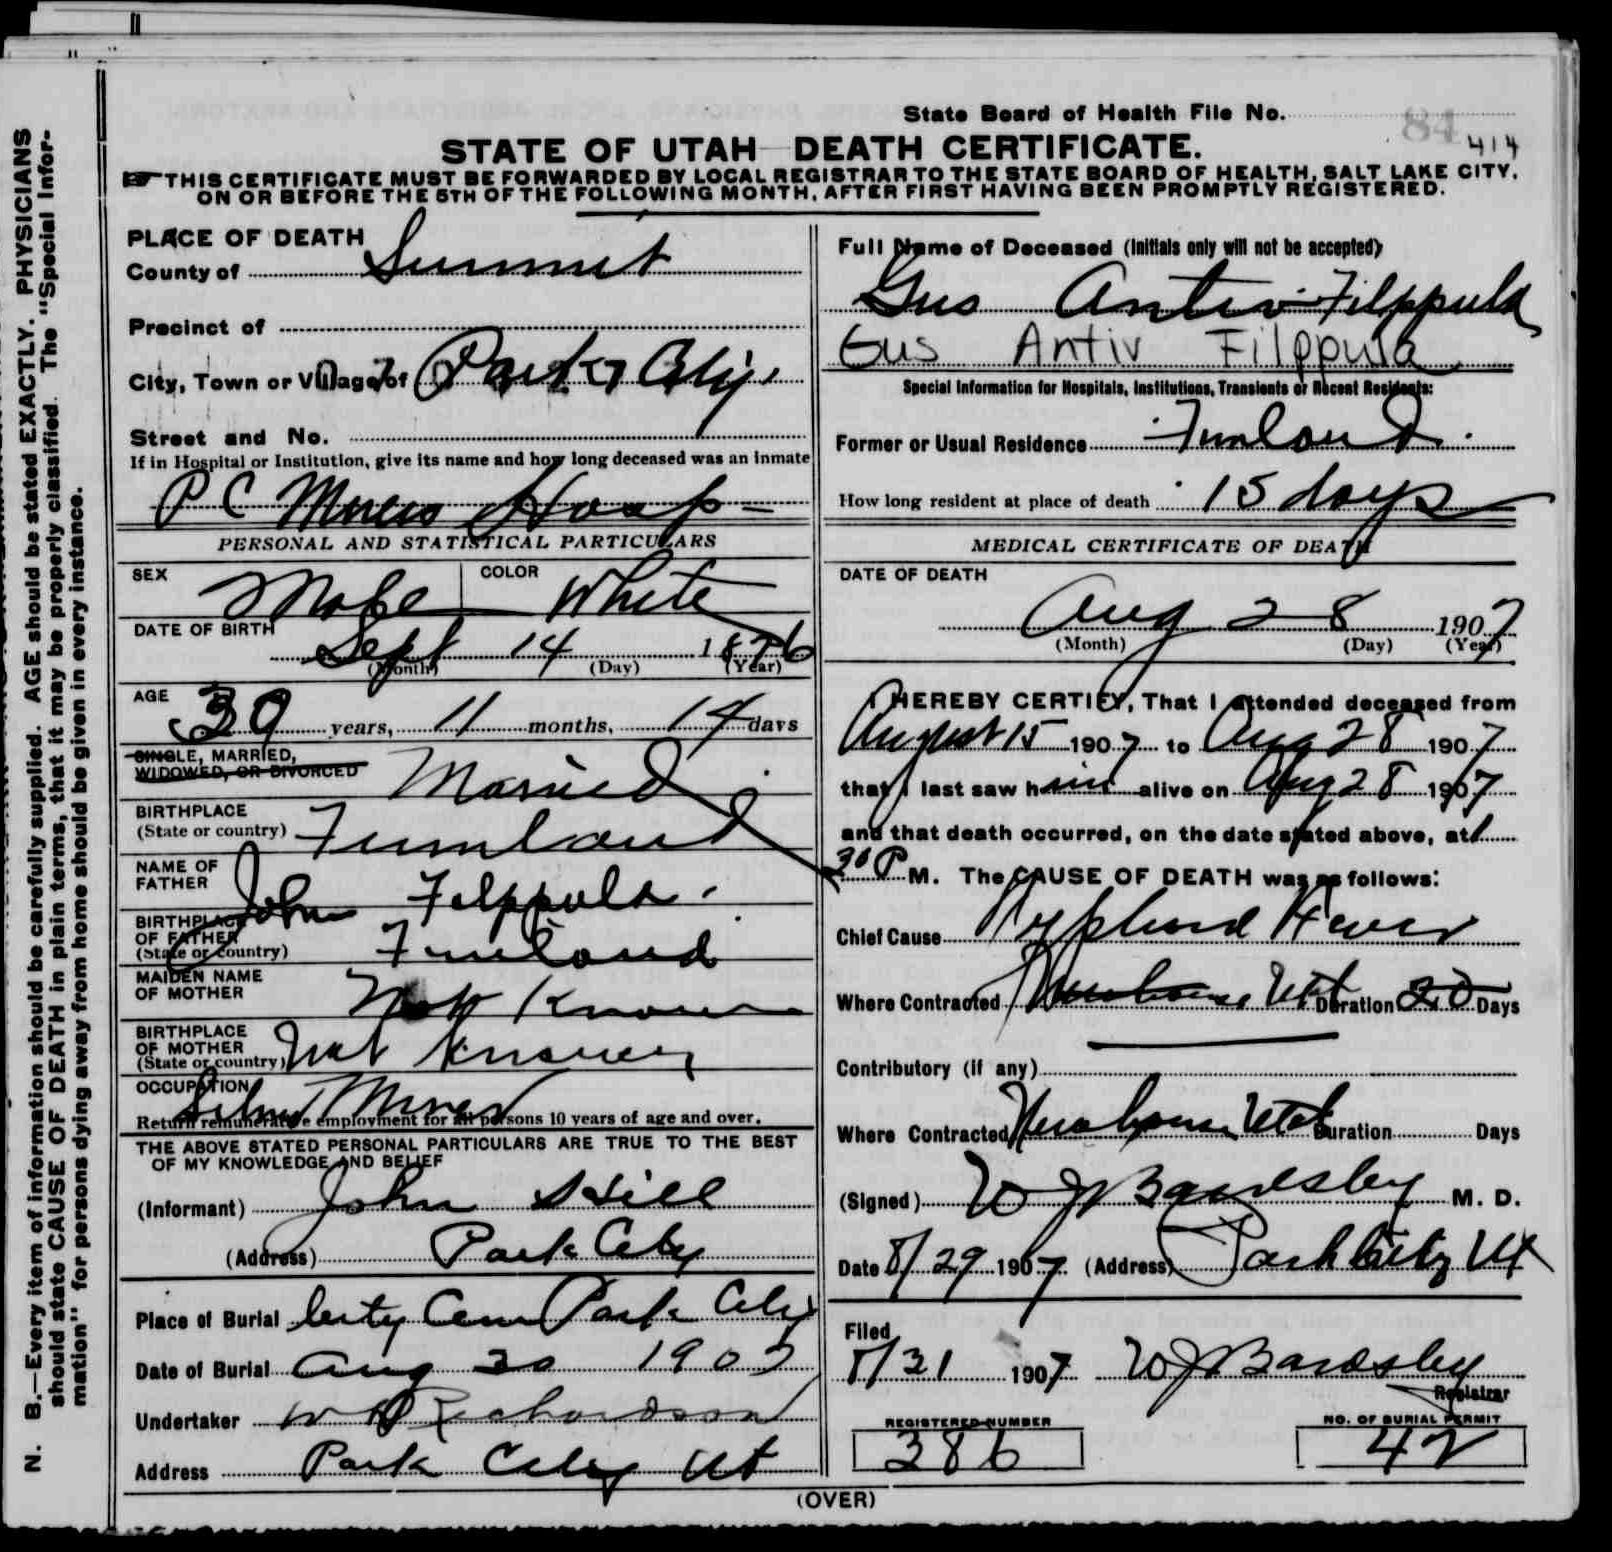 State Board of Health File No.
84
414
STATE OF UTAH DEATH CERTIFICATE.
THIS CERTIFICATE MUST BE FORWARDED BY LOCAL REGISTRAR TO THE STATE BOARD OF HEALTH, SALT LAKE CITY,
ON OR BEFORE THE 5TH OF THE FOLLOWING MONTH, AFTER FIRST HAVING BEEN PROMPTLY REGISTERED.
PLACE OF DEATH
County of Summit
Precinct of
City, Town or Village of Park City
Street and No.
If in Hospital or Institution, give its name and how long deceased was an inmate
P C Miners Hosp
PERSONAL AND STATISTICAL PARTICULARS
SEX Male COLOR White
DATE OF BIRTH
Sept 14 1876
(Month) (Day) (Year)
AGE
30 years, 11 months, 14 days
SINGLE, MARRIED,
WIDOWED, OR DIVORCED
Married
BIRTHPLACE
(State or country) Finnland
NAME OF
FATHER
John Filppula
BIRTHPLACE
OF FATHER
(State or country) Finland
MAIDEN NAME
OF MOTHER
Not Known
BIRTHPLACE
OF MOTHER
(State or country) Not Known
OCCUPATION
Silver Miner
Return remunerative employment for all persons 10 years of age and over.
THE ABOVE STATED PERSONAL PARTICULARS ARE TRUE TO THE BEST
OF MY KNOWLEDGE AND BELIEF
(Informant) John Hill
(Address) Park City
Place of Burial City Cem Park City
Date of Burial Aug 30 1907
Undertaker Richardson
Address Park City Ut
Full Name of Deceased (Initials only will not be accepted)
Gus Antiv Filppula
Gus Antiv Filppula
Special Information for Hospitals, Institutions, Transients or Recent Residents:
Former or Usual Residence Finland
How long resident at place of death 15 days
MEDICAL CERTIFICATE OF DEATH
DATE OF DEATH
Aug 28 1907
(Month) (Day) (Year)
I HEREBY CERTIFY, That I attended deceased from
August 15 1907 to Aug 28 1907
that I last saw him alive on Aug 28 1907
and that death occurred, on the date stated above, at 1
30 P M. The CAUSE OF DEATH was as follows:
Chief Cause Typhoid Fever
Where Contracted Newhouse Utah Duration 20 Days
Contributory (if any)
Where Contracted Newhouse Utah Duration Days
(Signed) W J Bardsley M. D.
Date 8/29 1907 (Address) Park City Ut
Filed
8/31 1907 W J Bardsley
Registrar
REGISTERED NUMBER
386
NO. OF BURIAL PERMIT
42
(OVER)
N. B.—Every item of information should be carefully supplied. AGE should be stated EXACTLY. PHYSICIANS
should state CAUSE OF DEATH in plain terms, that it may be properly classified. The "Special Infor-
mation" for persons dying away from home should be given in every instance.